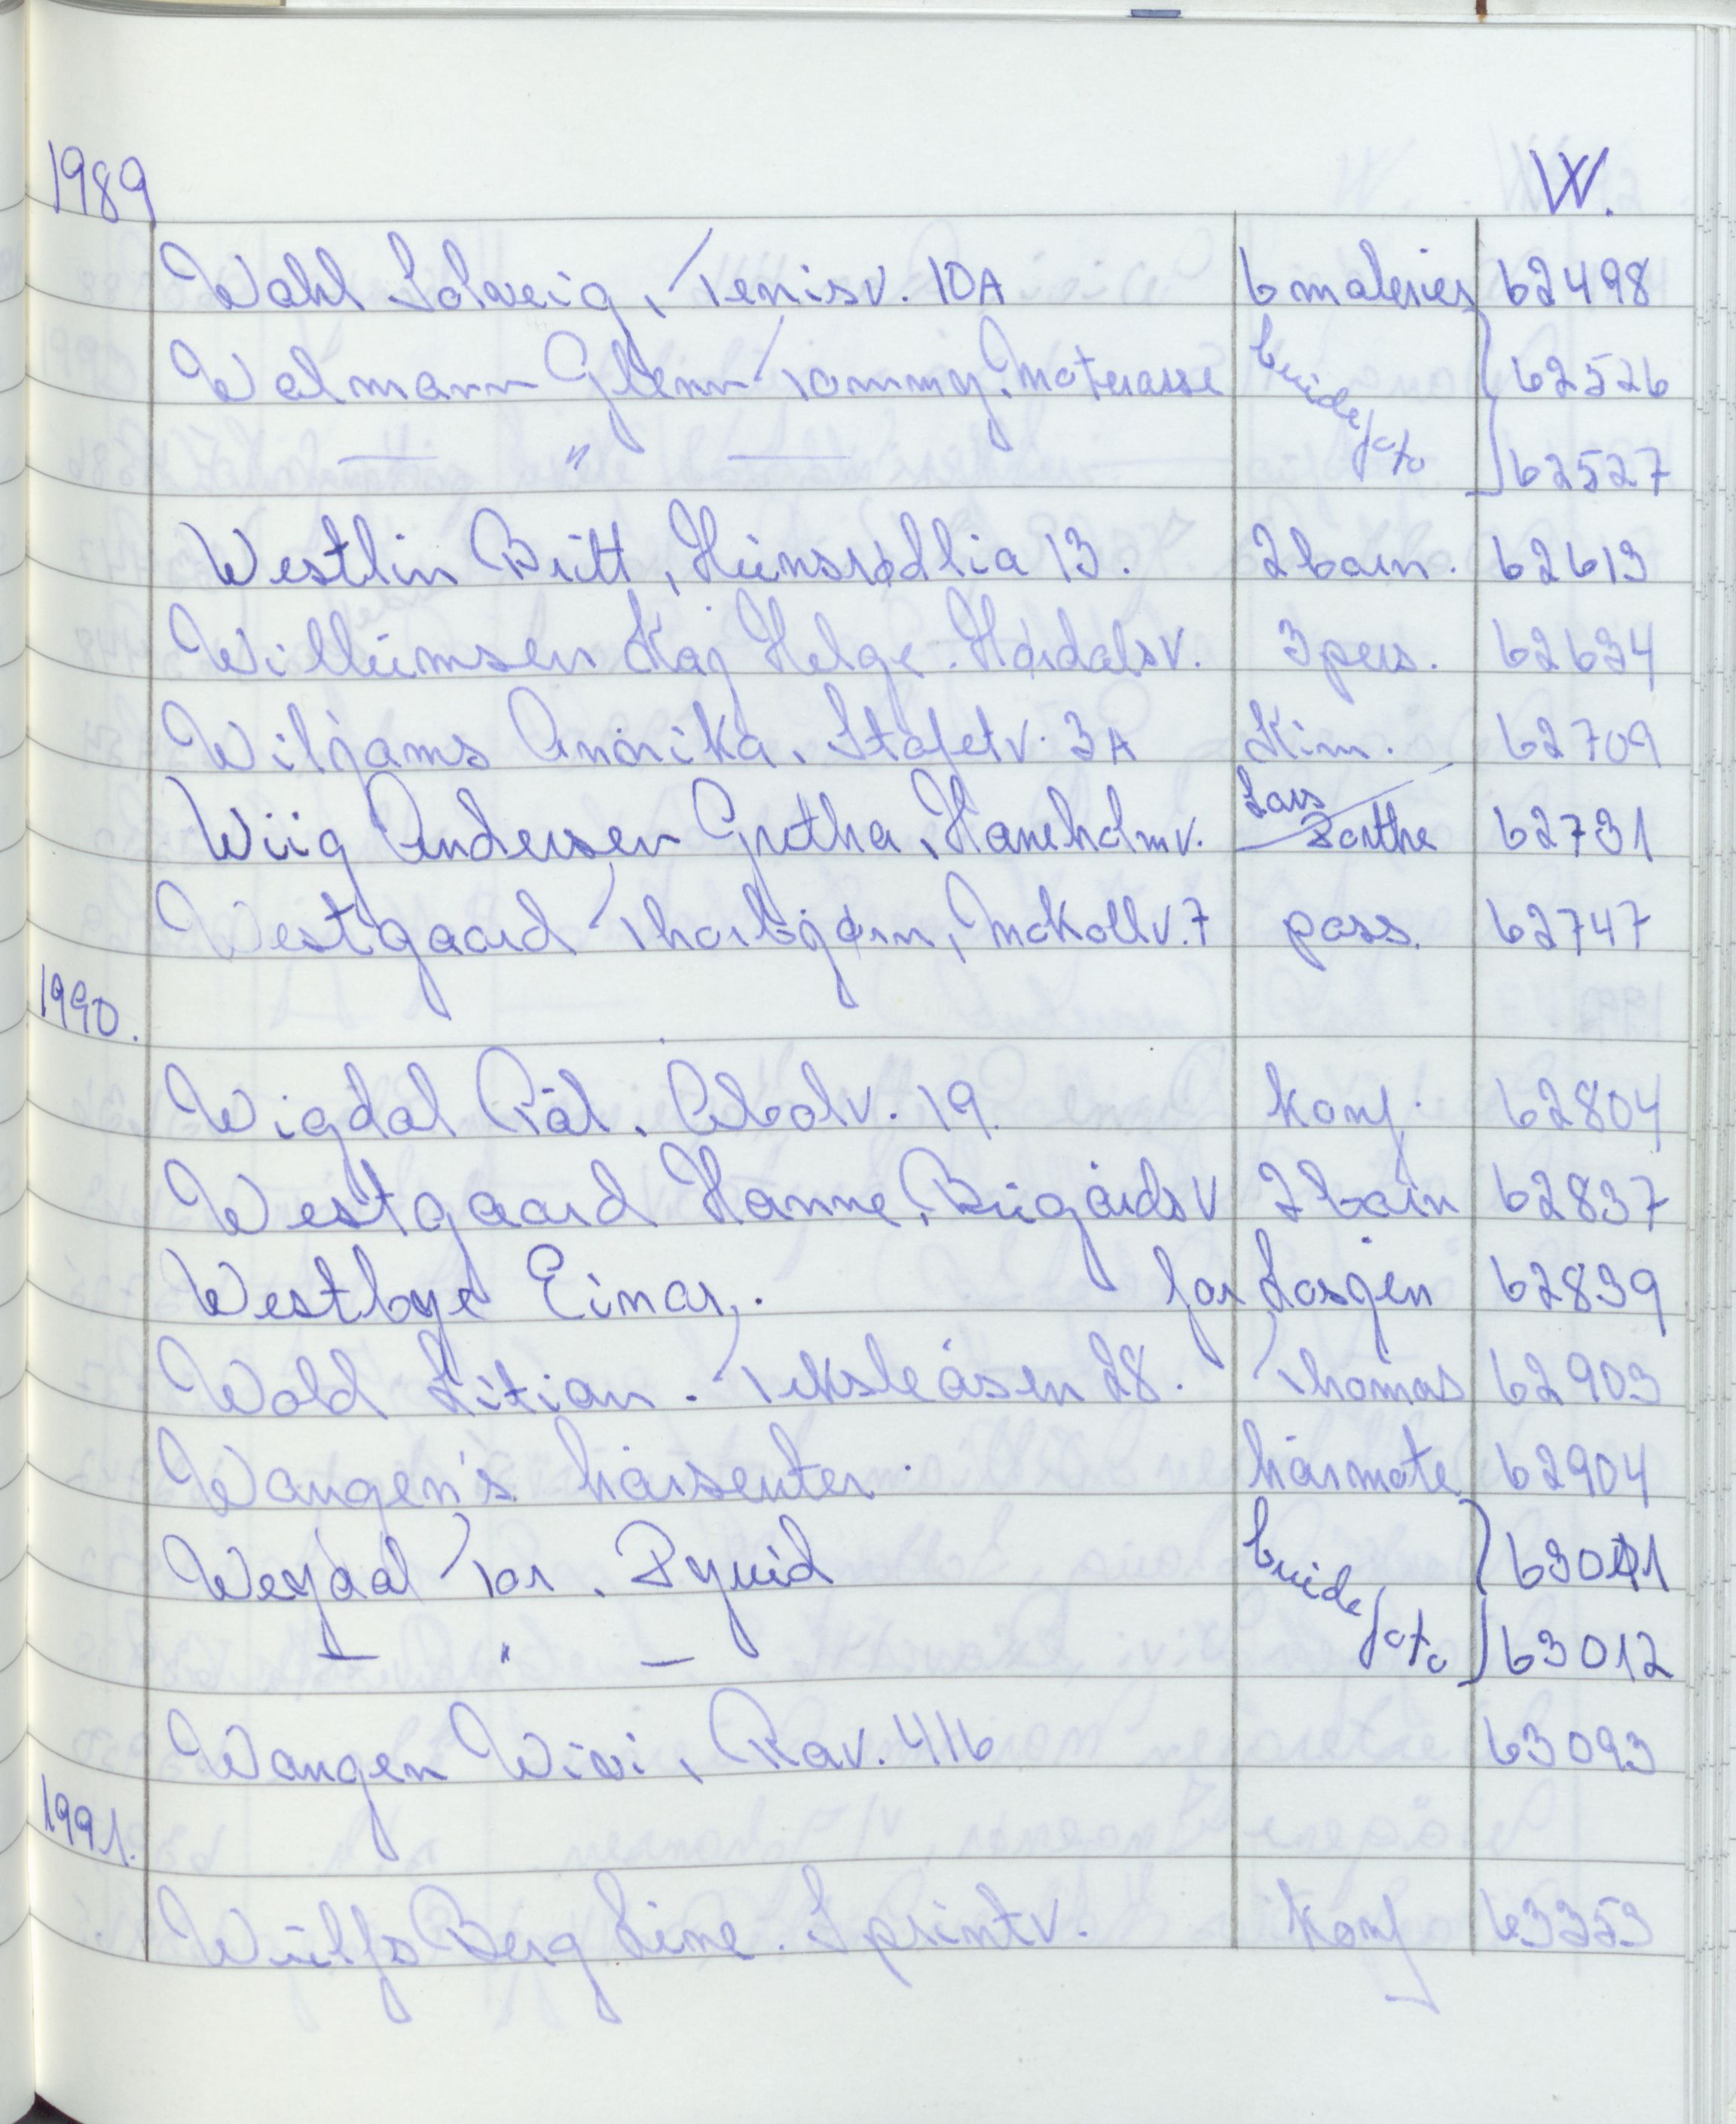 1989 W.
Wahl Solveig, Tenisv. 10A 6 malerier 62498
Walmann Glenn Tommy. Moterasse brude 62526
— " — foto 62527
Westlin Britt, Huinsrødlia 13. 2 barn. 62613
Willumsen Kaj Helge. Hårdalsv. 3 pers. 62634
Wiljams Annrika. Stafetv. 3A Kim. 62709
Wiig Andersen Gretha, Haneholmv. Lars Dorthe 62731
Westgaard Thorbjørn, Mokollv. 7 pass. 62747
1990.
Wigdal Pål. Abolv. 19. konf. 62804
Westgaard Hanne, Brigårdsv 2 barn 62837
Westbye Einar. for Losjen 62839
Wold Lilian. Teksleåsen 28. Thomas 62903
Wangen's hårsenter. hårmote 62904
Weydal Tor. brude 63011
— " — foto 63012
Wangen Wivi, Rav. 416 63093
1991.
Berg Line. Sprintv. konf 63353